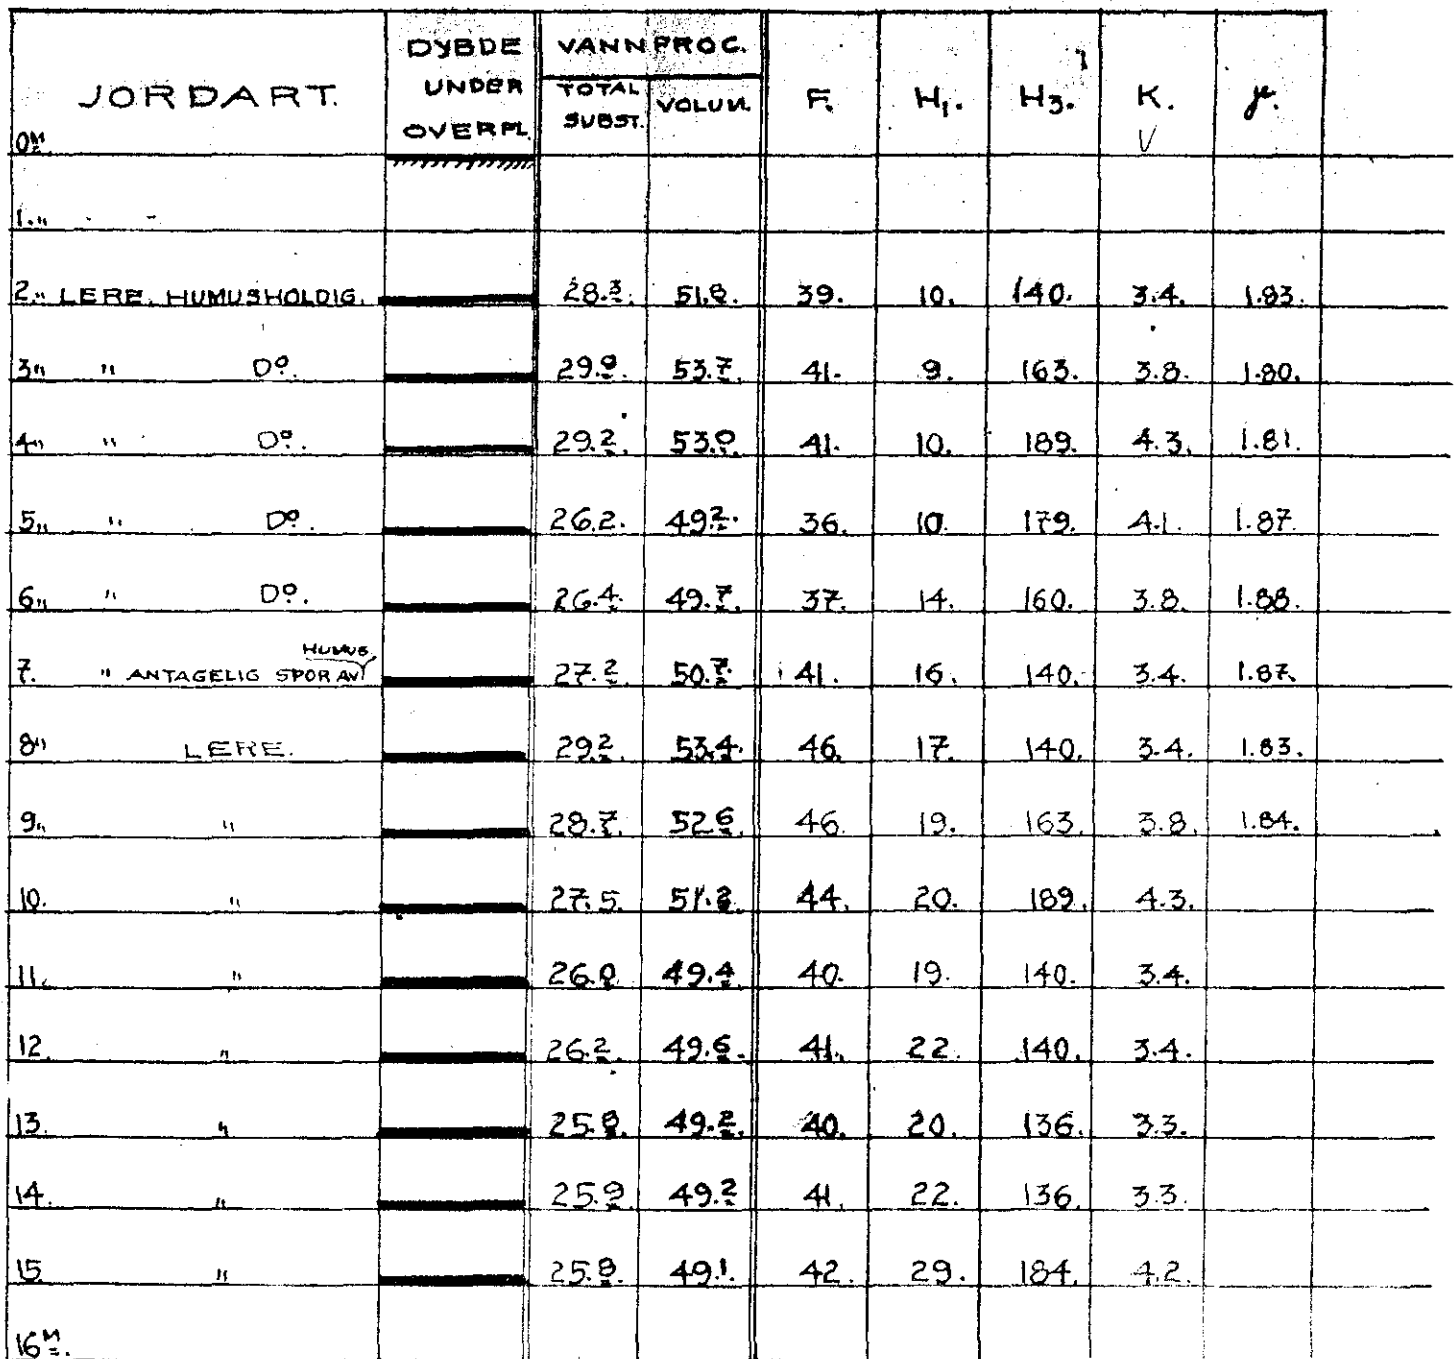 JORDART. DYBDE UNDER OVERFL. VANNPROC. TOTAL SUBST. VOLUM. F. H₁. H₃. K. γ.
0ᴹ. V
1."
2." LERE. HUMUSHOLDIG. 28.3. 51.8. 39. 10. 140. 3.4. 1.83.
3" " Dº. 29.9. 53.7. 41. 9. 163. 3.8. 1.80.
4" " Dº. 29.2. 53.0. 41. 10. 189. 4.3. 1.81.
5" " Dº. 26.2. 49.2. 36. 10. 179. 4.1. 1.87.
6" " Dº. 26.4. 49.7. 37. 14. 160. 3.8. 1.88.
7. " ANTAGELIG SPOR AV HUMUS. 27.2. 50.7. 41. 16. 140. 3.4. 1.87.
8" LERE. 29.2. 53.4. 46. 17. 140. 3.4. 1.83.
9" " 28.7. 52.6. 46. 19. 163. 3.8. 1.84.
10. " 27.5. 51.2. 44. 20. 189. 4.3.
11. " 26.0. 49.4. 40. 19. 140. 3.4.
12. " 26.2. 49.6. 41. 22. 140. 3.4.
13. " 25.8. 49.2. 40. 20. 136. 3.3.
14. " 25.9. 49.2 41. 22. 136. 3.3.
15 " 25.8. 49.1. 42. 29. 184. 4.2.
16ᴹ.